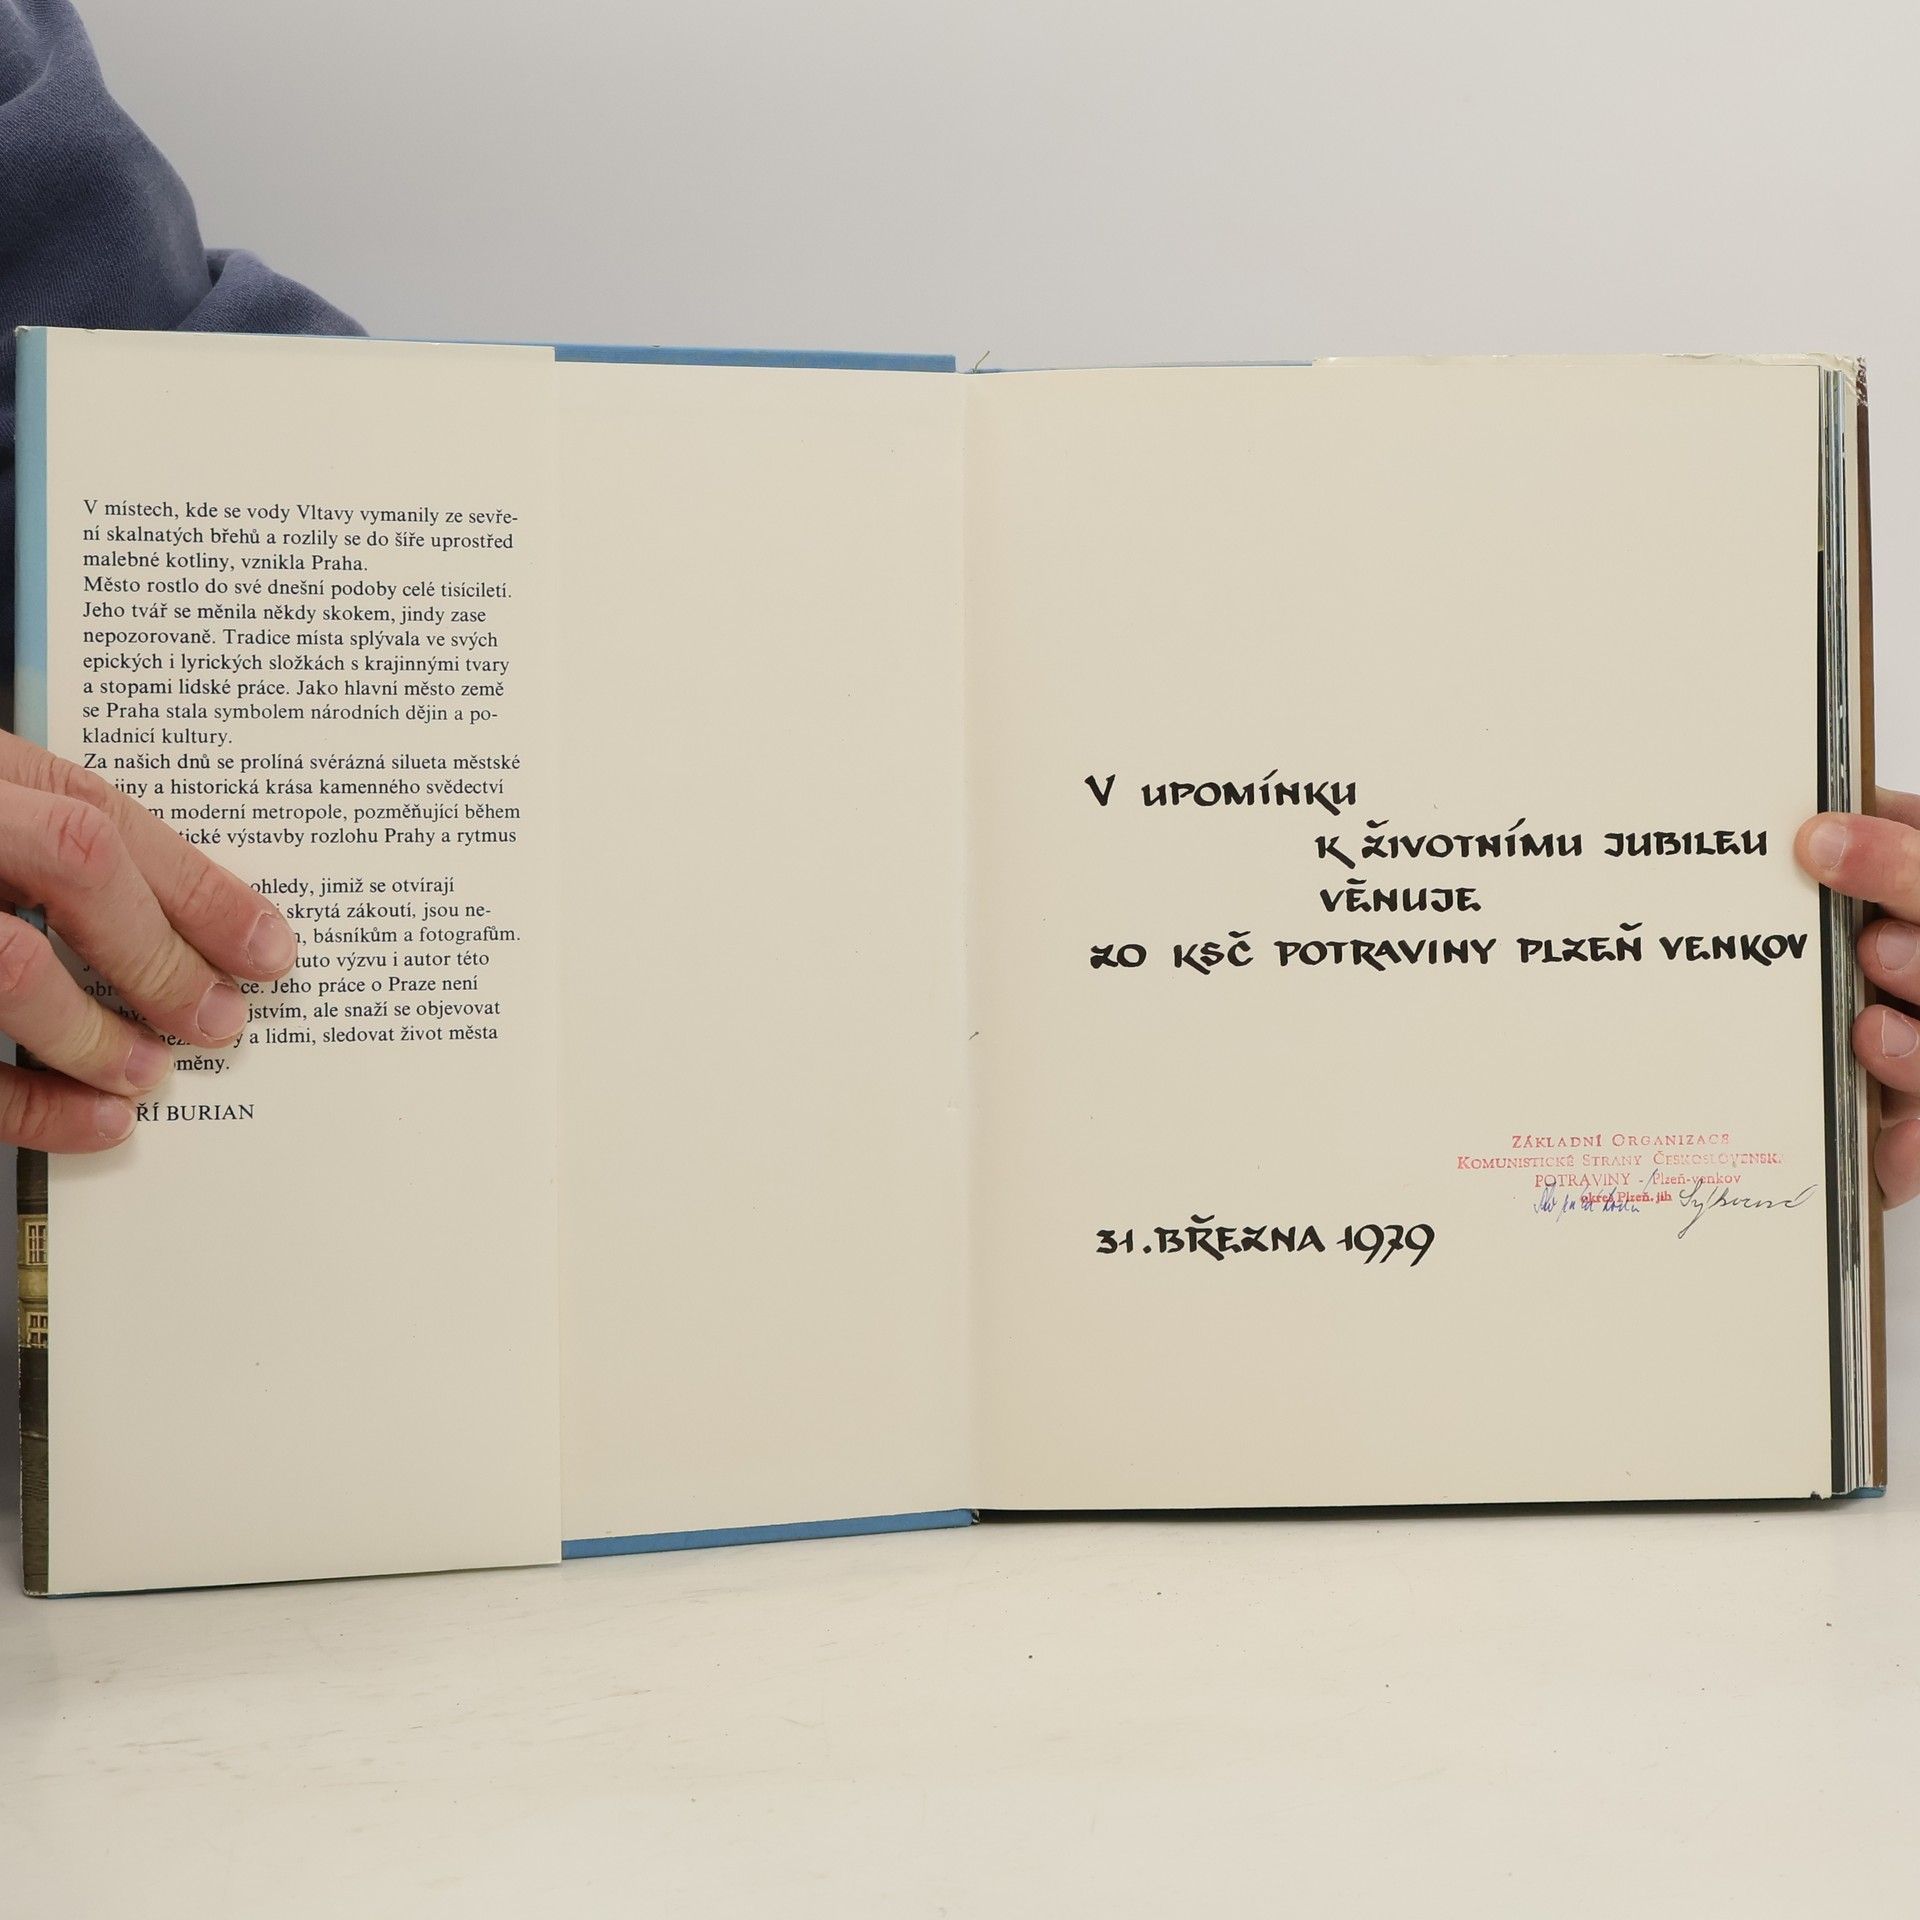 V místech, kde se vody Vltavy vymanily ze sevře-
ní skalnatých břehů a rozlily se do šíře uprostřed
malebné kotliny, vznikla Praha.
Město rostlo do své dnešní podoby celé tisíciletí.
Jeho tvář se měnila někdy skokem, jindy zase
nepozorovaně. Tradice místa splývala ve svých
epických i lyrických složkách s krajinnými tvary
a stopami lidské práce. Jako hlavní město země
se Praha stala symbolem národních dějin a po-
kladnicí kultury.
Za našich dnů se prolíná svérázná silueta městské
a historická krása kamenného svědectví
moderní metropole, pozměňující během
výstavby rozlohu Prahy a rytmus
jimiž se otvírají
skrytá zákoutí, jsou ne-
básníkům a fotografům.
tuto výzvu i autor této
Jeho práce o Praze není
ale snaží se objevovat
a lidmi, sledovat život města
BURIAN
V UPOMÍNKU
K ŽIVOTNÍMU JUBILEU
VĚNUJE
ZO KSČ POTRAVINY PLZEŇ VENKOV
ZÁKLADNÍ ORGANIZACE
KOMUNISTICKÉ STRANY ČESKOSLOVENSK.
POTRAVINY - Plzeň-venkov
okres Plzeň, jih
31. BŘEZNA 1979